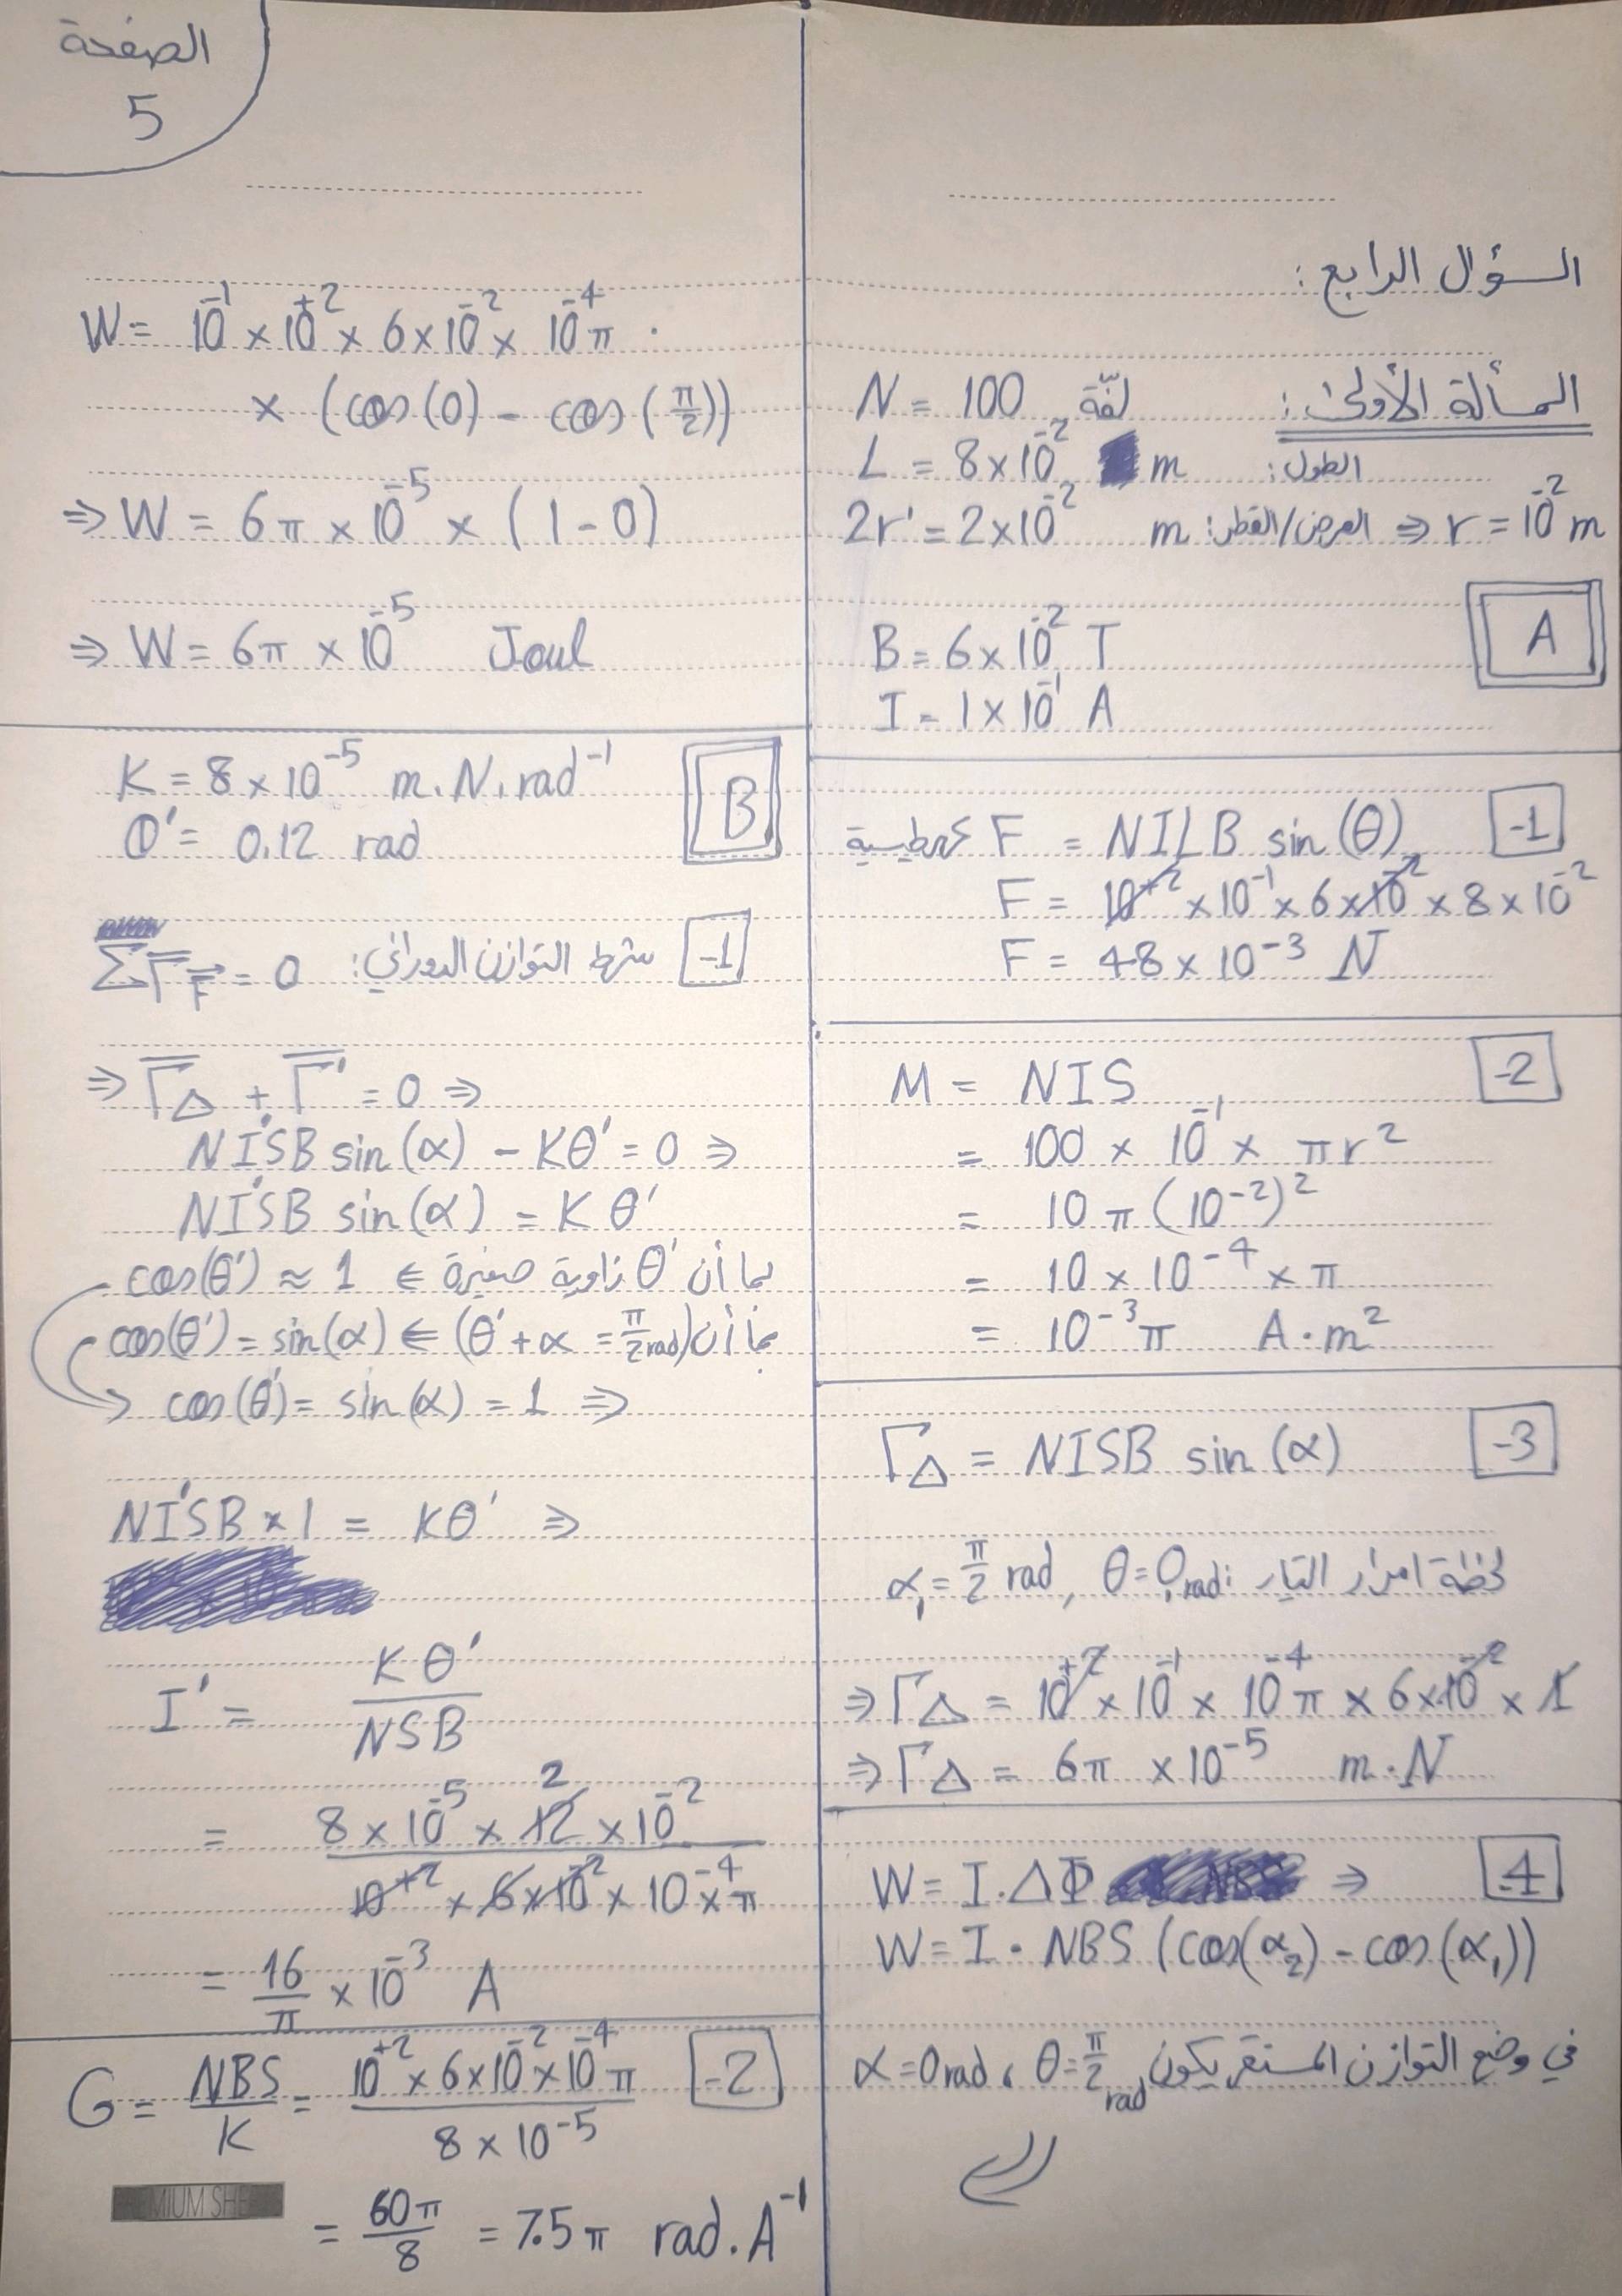 الصفحة
5
السؤال الرابع:
المسألة الأولى:
N = 100 لفّة
L = 8×10⁻² m الطول:
2r' = 2×10⁻² m العرض/القطر: ⇒ r = 10⁻² m
A
B = 6×10⁻² T
I = 1×10⁻¹ A
-1
F كهرطيسية = NILB sin(θ)
F = 10⁺² × 10⁻¹ × 6×10⁻² × 8×10⁻²
F = 48×10⁻³ N
-2
M = NIS
= 100 × 10⁻¹ × πr²
= 10π(10⁻²)²
= 10 × 10⁻⁴ × π
= 10⁻³π A·m²
-3
Γ△ = NISB sin(α)
لحظة امرار التيار: θ = 0 rad, α₁ = π/2 rad
⇒ Γ△ = 10⁺² × 10⁻¹ × 10⁻⁴π × 6×10⁻² × 1
⇒ Γ△ = 6π × 10⁻⁵ m·N
-4
W = I.ΔΦ ⇒
W = I · NBS (cos(α₂) - cos(α₁))
في وضع التوازن المستقر يكون θ = π/2 rad ، α = 0 rad
W = 10⁻¹ × 10⁺² × 6×10⁻² × 10⁻⁴π ·
× (cos(0) - cos(π/2))
⇒ W = 6π × 10⁻⁵ × (1-0)
⇒ W = 6π × 10⁻⁵ Joul
B
K = 8×10⁻⁵ m.N.rad⁻¹
θ' = 0.12 rad
-1
شرط التوازن الدوراني: ΣΓ̅_F⃗ = 0
⇒ Γ̅△ + Γ̅' = 0 ⇒
NI'SB sin(α) - Kθ' = 0 ⇒
NI'SB sin(α) = Kθ'
بما أن θ' زاوية صغيرة ⇐ cos(θ') ≈ 1
بما أن (θ' + α = π/2 rad) ⇐ cos(θ') = sin(α)
→ cos(θ') = sin(α) = 1 ⇒
NI'SB × 1 = Kθ' ⇒
I' = Kθ'/NSB
= 8×10⁻⁵ × 12 2 × 10⁻² / 10⁺² × 6×10⁻² × 10⁻⁴ × π
= 16/π × 10⁻³ A
-2
G = NBS/K = 10⁺² × 6×10⁻² × 10⁻⁴π / 8×10⁻⁵
= 60π/8 = 7.5π rad.A⁻¹